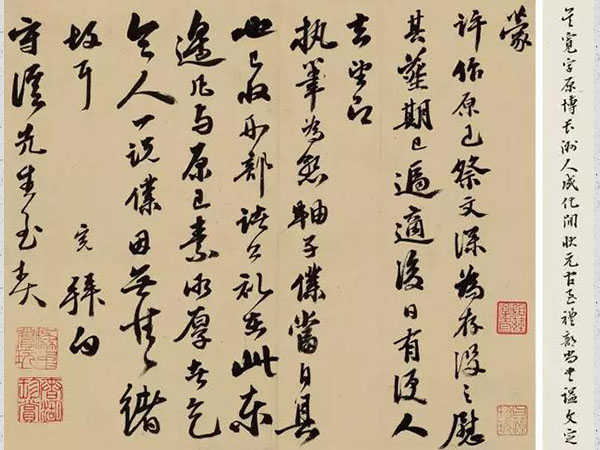 吳寬字原博長洲人成化間狀元官至禮部尚書謚文定
蒙
許作原已祭文深為存沒之慰
其葬期已逼適後日有便人
去望即
執筆為懇軸子僕當自具
也已收刑部諸公禮在此東
邊凡與原已素相厚者乞
令人一說僕因無情緒
故耳
寬拜白
守溪先生